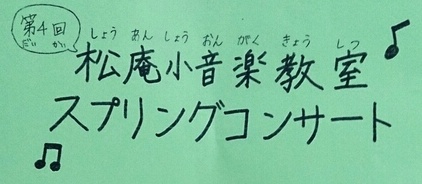 第4回
だい かい
しょう あん しょう おん がく きょう しつ
松庵小音楽教室
スプリングコンサート